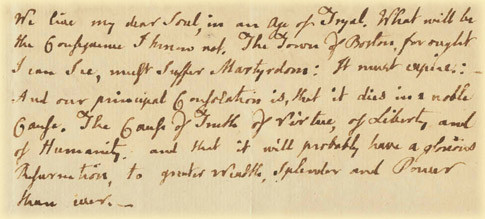 We live my dear Soul, in an Age of Tryal. What will be
the Consequence I know not. The Town of Boston, for ought
I can See, must Suffer Martyrdom: It must expire: —
And our principal Consolation is, that it dies in a noble
Cause. The Cause of Truth, of Virtue, of Liberty and
of Humanity. and that it will probably have a glorious
Reformation, to greater Wealth, Splendor and Power
than ever. —